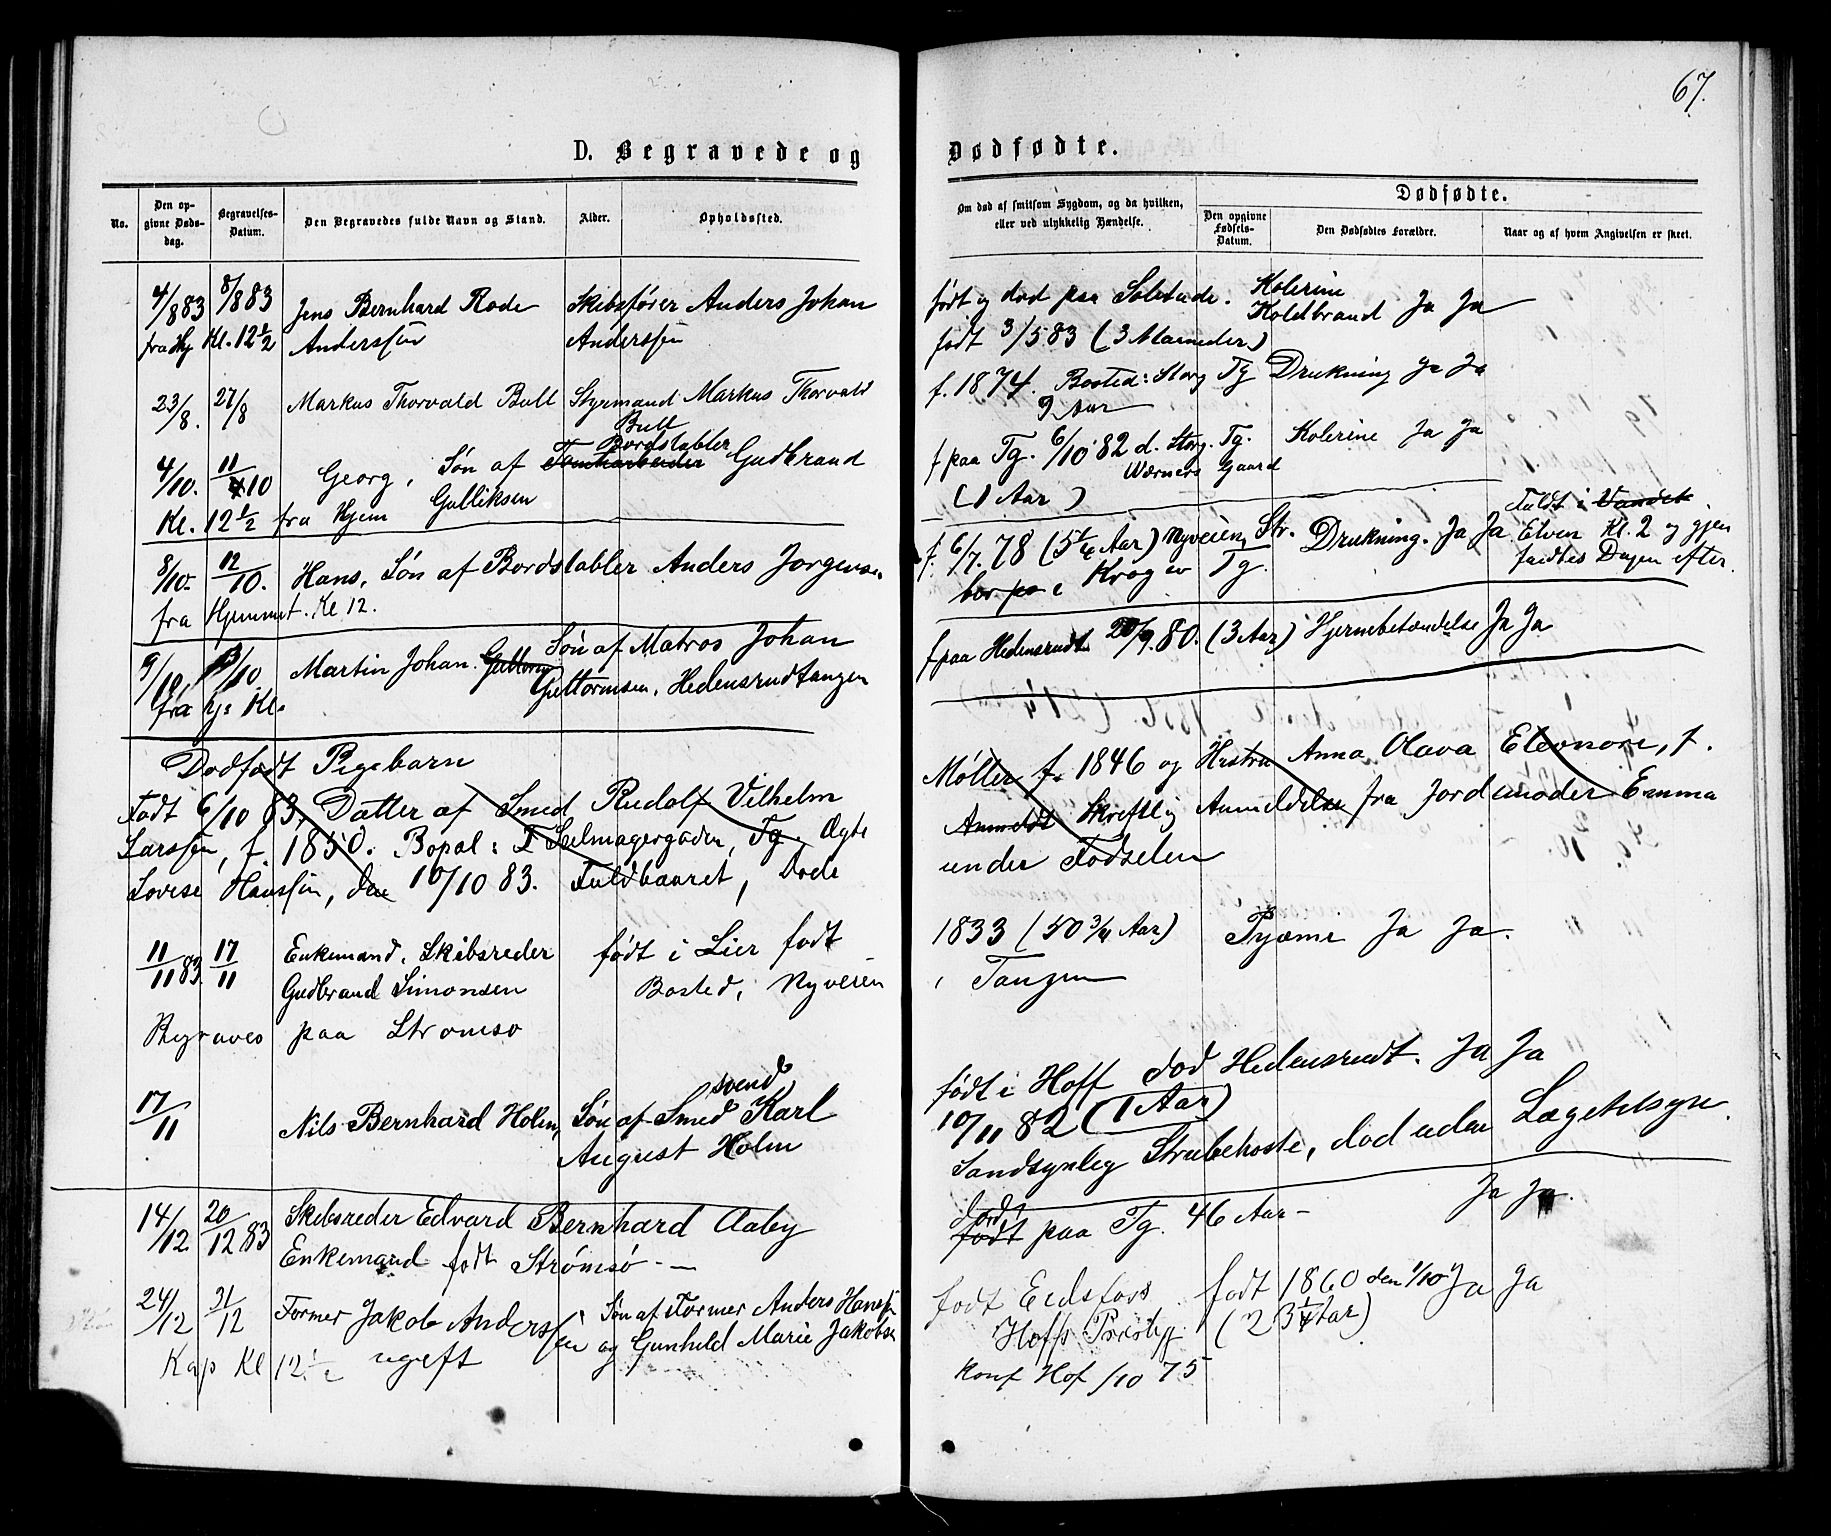 67.
D. Begravede og
Dødfødte.
No.
Den opgivne Dødsdag.
Begravelses-Datum.
Den Begravedes fulde Navn og Stand.
Alder.
Opholdssted.
Om død af smitsom Sygdom, og da hvilken, eller ved ulykkelig Hændelse.
Dødfødte.
Den opgivne Fødsels-Datum.
Den Dødfødtes Forældre.
Naar og af hvem Angivelsen er skeet.
4/8 83 8/8 83 Jens Bernhard Rode Skibsfører Anders Johan
fra Hj Kl. 12 1/2 Anderssen Anderssen
født og død paa Solstude. Kolerine
Koldbrand Ja Ja
født 3/5 83 (3 Maaneder)
23/8. 27/8 Markus Thorvald Bull Styrmand Markus Thorvald
Bull
f. 1874. Bosted: Storg Tg Drukning Ja Ja
9 Aar
Bordstabler
4/10. 11/10 Georg, Søn af Tomtearbeider Gudbrand
Gulliksen
Kl. 12 1/2 fra Hjem
f paa Tg. 6/10 82 d. Storg. Tg. Kolerine Ja Ja
Wærners Gaard
(1 Aar)
8/10. 12/10. Hans, Søn af Bordstabler Anders Jorgensen
fra Hjemmet. Kl 12.
f. 6/7. 78 (5 1/4 Aar) Nyveien, Str. Drukning. Ja Ja
bor paa i Krog Tg.
Faldt i Vandet
Elven Kl. 2 og gjen
fandtes Dagen efter.
9/10. 13/10 Martin Johan. Søn af Matros Johan
Guttormsen, Hedensrudtangen
fra Hj: Kl.
f paa Hedensrudt 20/9. 80. (3 Aar) Hjernebetændelse Ja Ja
Dodfødt Pigebarn
Født 6/10 83, Datter af Smed Rudolf Vilhelm
Larssen, f. 1850. Bopæl: Selmagergaden, Tg. Ægte
Lovise Hanssen, den 10/10 83. Fuldbaaret, Døde
Møller f. 1846 og Hustru Anna Olava Eleonore, f.
Anmeldt Skriftlig Anmeldelse fra Jordmoder Emma
under Fødselen
11/11 83. 17/11 Enkemand, Skibsreder født i Lier født
Gudbrand Simonsen Bosted, Nyveien
Begraves paa Strømsø
1833 (50 3/4 Aar) Pyæmi Ja Ja.
, Tangen
svend
17/11 Nils Bernhard Holm, Søn af Smed Karl
August Holm
født i Hoff død Hedensrudt. Ja Ja
10/11 82 (1 Aar)
Sandsynlig Strubehoste, død uden Lægetilsyn.
14/12 20/12 83 Skibsreder Edvard Bernhard Aaby
Enkemand født Strømsø -
død
født paa Tg. 46 Aar - Ja Ja.
24/12 31/12 Former Jakob Anderssen, Søn af Former Anders Hanssen
og Gunhild Marie Jakobsen
Kap Kl 12 1/2 ugift
født Eidsfos født 1860 den 1/10 Ja Ja
Hoffs Præstegj (23 1/4 Aar)
Konf Hof /10 75